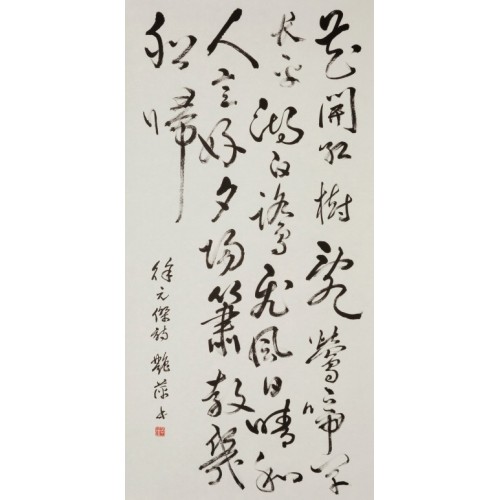 花開紅樹亂鶯啼草
長平湖白鷺飛風日晴和
人意好夕陽簫鼓幾
船歸
徐元傑詩 艷萍书